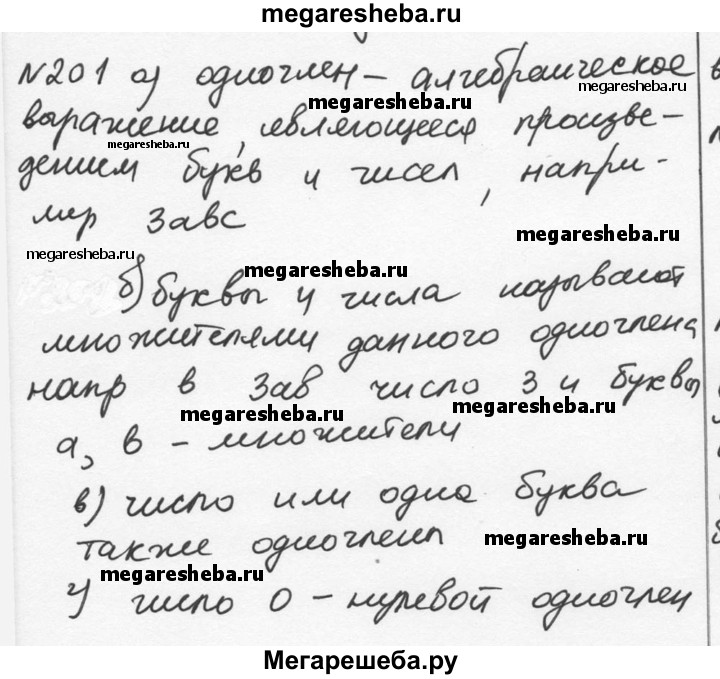 megaresheba.ru
N201 а) одночлен – алгебраическое
megaresheba.ru
megaresheba.ru
выражение, являющееся произве-
megaresheba.ru
дением букв и чисел, напри-
мер 3авс
megaresheba.ru
megaresheba.ru
megaresheba.ru
б) буквы и числа называют
множителями данного одночлена,
напр в 3ав число 3 и буквы
megaresheba.ru
megaresheba.ru
а, в – множители
в) число или одна буква
также одночлен
megaresheba.ru
megaresheba.ru
г) число 0 – нулевой одночлен
Мегарешеба.ру